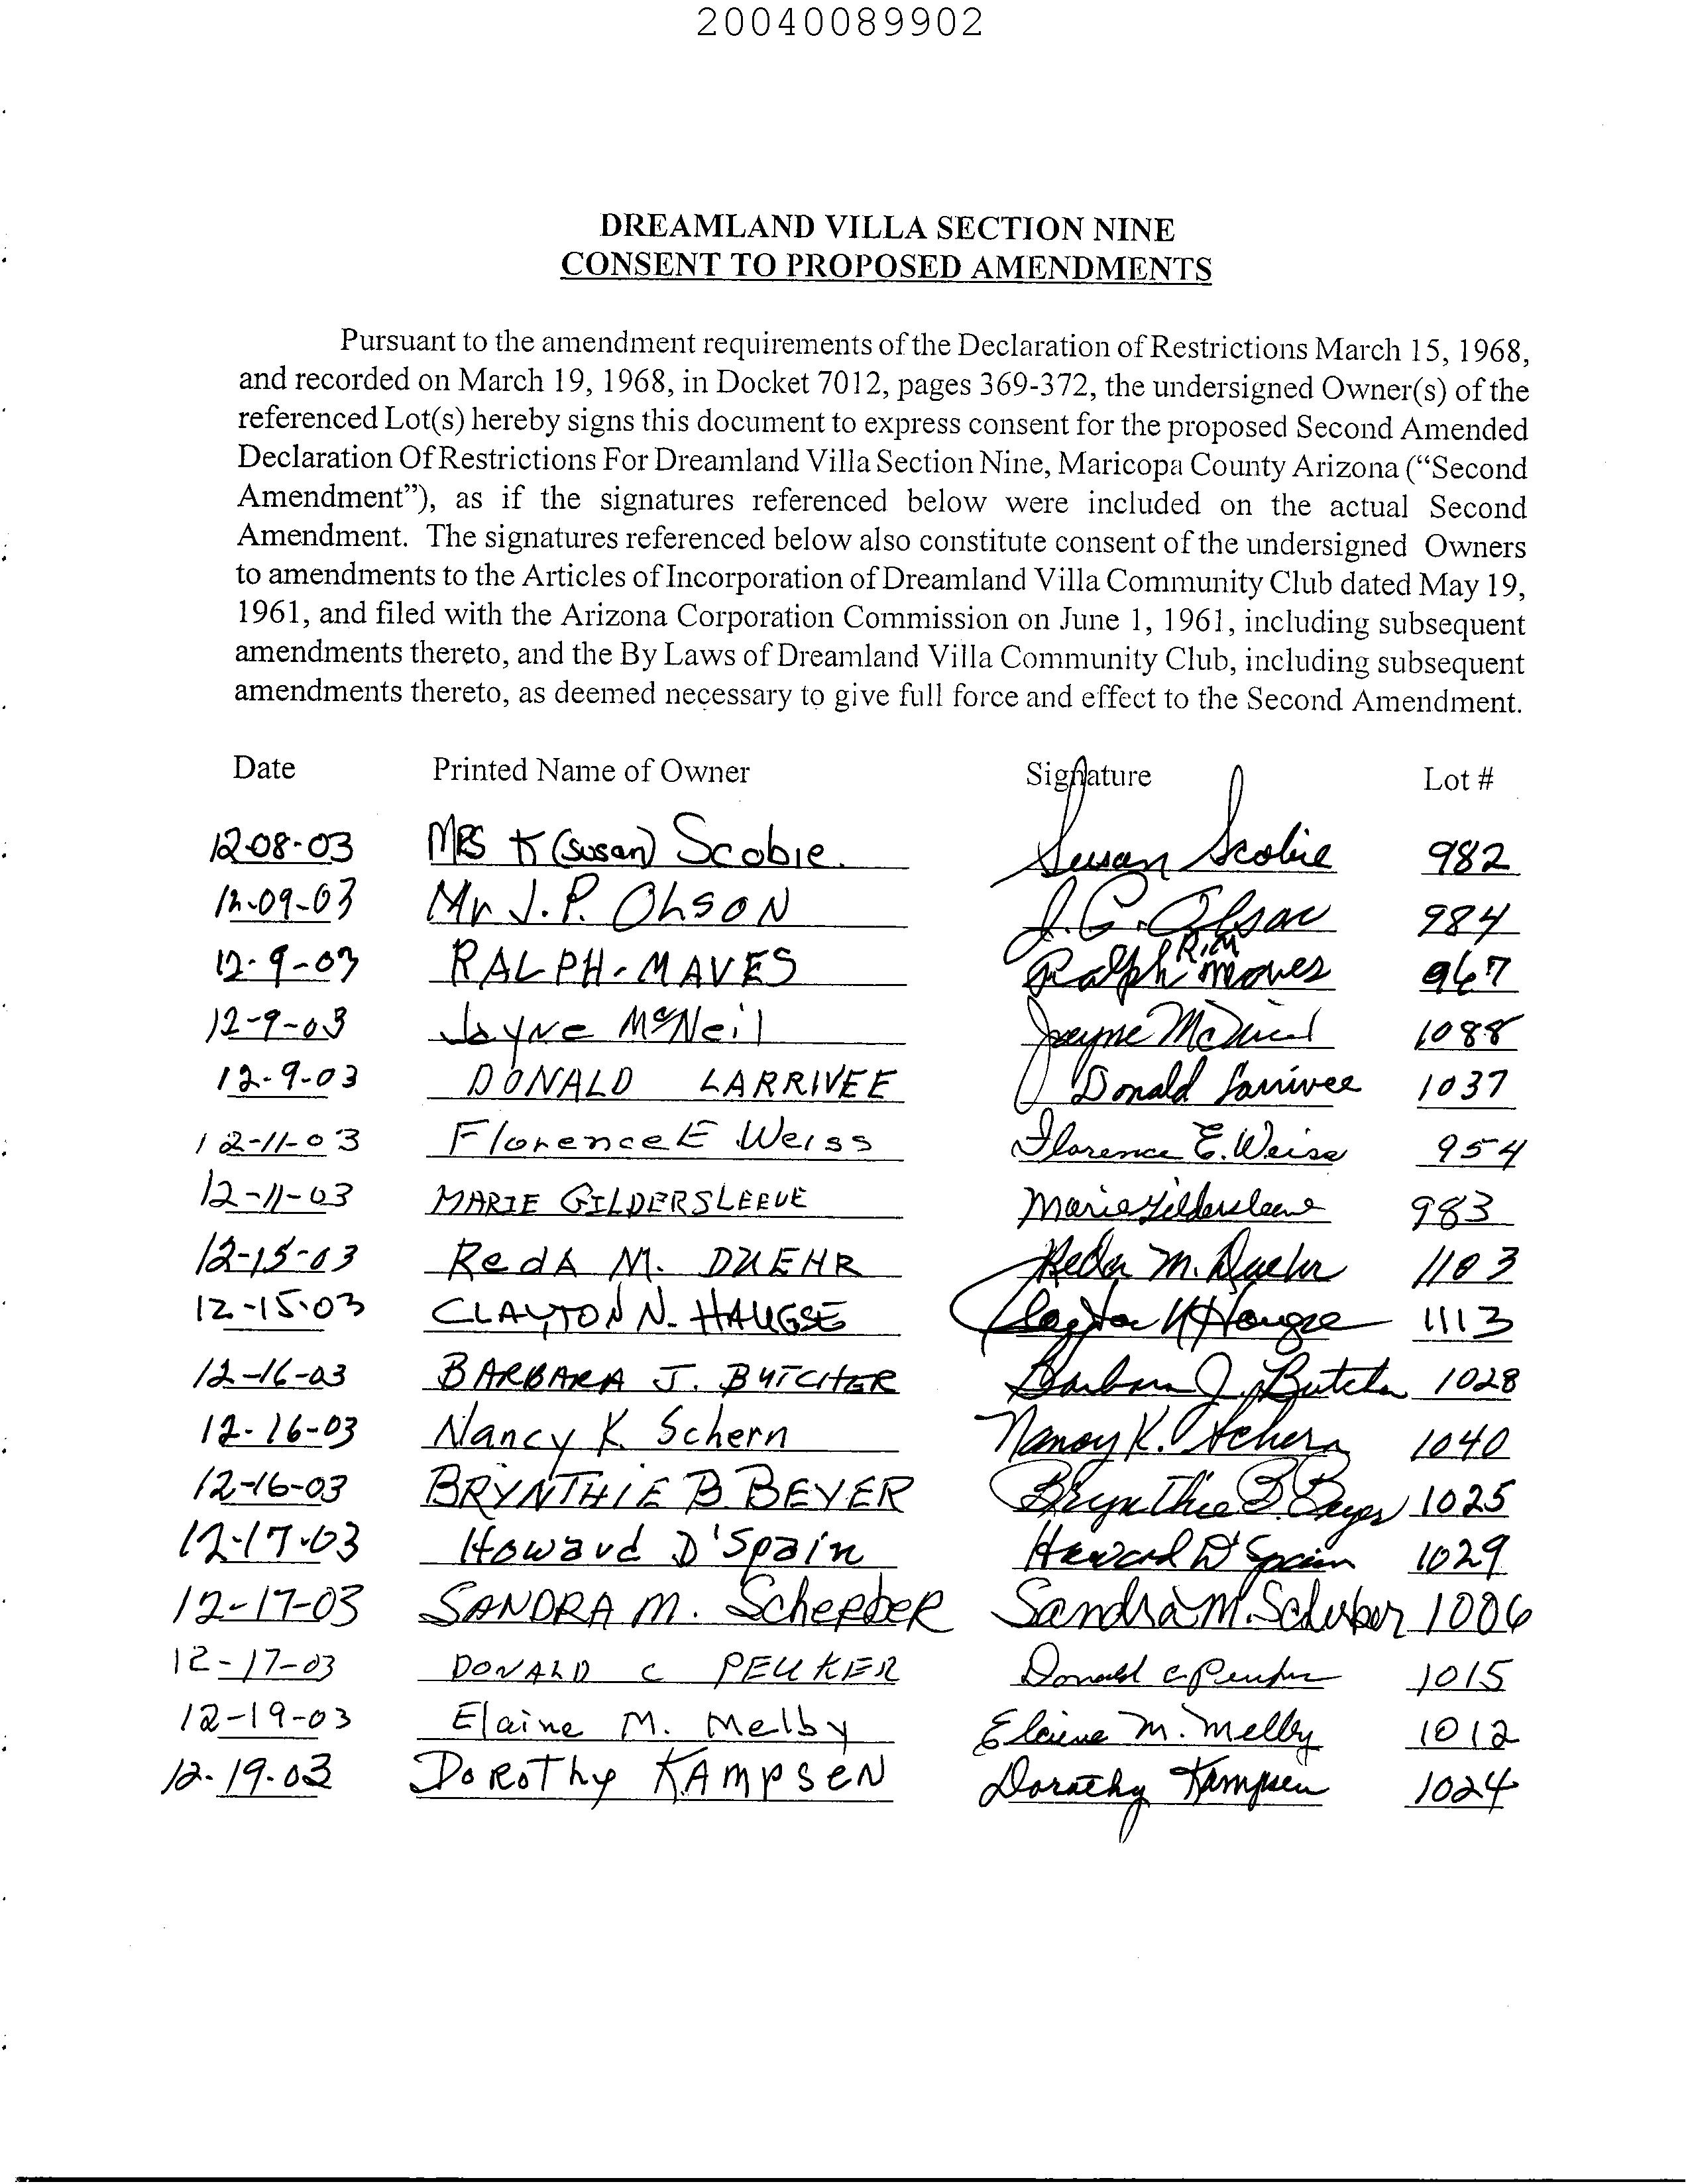 20040089902
DREAMLAND VILLA SECTION NINE
CONSENT TO PROPOSED AMENDMENTS
Pursuant to the amendment requirements of the Declaration of Restrictions March 15, 1968,
and recorded on March 19, 1968, in Docket 7012, pages 369-372, the undersigned Owner(s) of the
referenced Lot(s) hereby signs this document to express consent for the proposed Second Amended
Declaration Of Restrictions For Dreamland Villa Section Nine, Maricopa County Arizona (“Second
Amendment”), as if the signatures referenced below were included on the actual Second
Amendment. The signatures referenced below also constitute consent of the undersigned Owners
to amendments to the Articles of Incorporation of Dreamland Villa Community Club dated May 19,
1961, and filed with the Arizona Corporation Commission on June 1, 1961, including subsequent
amendments thereto, and the By Laws of Dreamland Villa Community Club, including subsequent
amendments thereto, as deemed necessary to give full force and effect to the Second Amendment.
Date Printed Name of Owner Signature Lot #
12-08-03 MRS K (Susan) Scobie. Susan Scobie 982
12-09-03 Mr J.P. OhsoN 984
12-9-03 RALPH-MAVES Ralph R.M Maves 967
12-9-03 Jayne McNeil Jayne McNeil 1088
12-9-03 DONALD LARRIVEE Donald Larrivee 1037
12-11-03 Florence E Weiss Florence E. Weiss 954
12-11-03 MARIE GILDERSLEEVE Marie Gildersleeve 983
12-15-03 RedA M. DUEHR Reda M. Duehr 1103
12-15-03 CLAYTON N. HAUGSE Clayton N Haugse 1113
12-16-03 BARBARA J. BUTCHER Barbara J. Butcher 1028
12-16-03 Nancy K. Schern Nancy K. Schern 1040
12-16-03 BRYNTHIE B. BEYER Brynthie B. Beyer 1025
12-17-03 Howard D'Spain Howard D'Spain 1029
12-17-03 SANDRA M. Scherber Sandra M. Scherber 1006
12-17-03 DONALD C PEUKER Donald C Peuker 1015
12-19-03 Elaine M. Melby Elaine M. Melby 1012
12-19-03 DoRoThy KAMpseN Dorothy Kampsen 1024